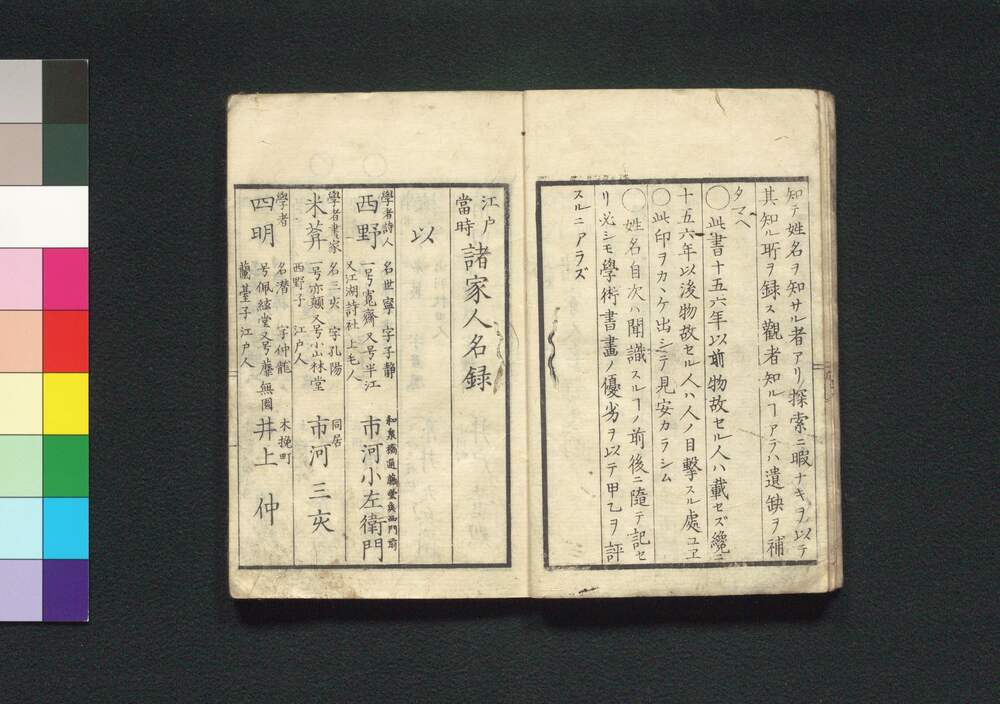 知テ姓名ヲ知サル者アリ探索ニ暇ナキヲ以テ
其知ル所ヲ録ス觀者知ルヿアラハ遺缺ヲ補
タマヘ
〇此書十五六年以前物故セル人ハ載セズ纔ニ
十五六年以後物故セル人ハ人ノ目擊スル處ユヱ
〇此印ヲカヽケ出シテ見安カラシム
〇姓名ノ目次ハ聞識スルヿノ前後ニ隨テ記セ
リ必シモ學術書畫ノ優劣ヲ以テ甲乙ヲ評
スルニアラズ
江戸當時諸家人名録
以
學者詩人
西野
名世寧 字子静
一号寛齋 又号半江
又江湖詩社 上毛人
和泉橋通藤堂矦西門前
市河小左衛門
學者書家
米葊
名三亥 字孔陽
一号亦顛 又号小山林堂
西野子 江戸人
同居
市河三亥
學者
四明
名潜 字仲龍
号佩絃堂 又号藤無園
蘭臺子 江戸人
木挽町
井上仲